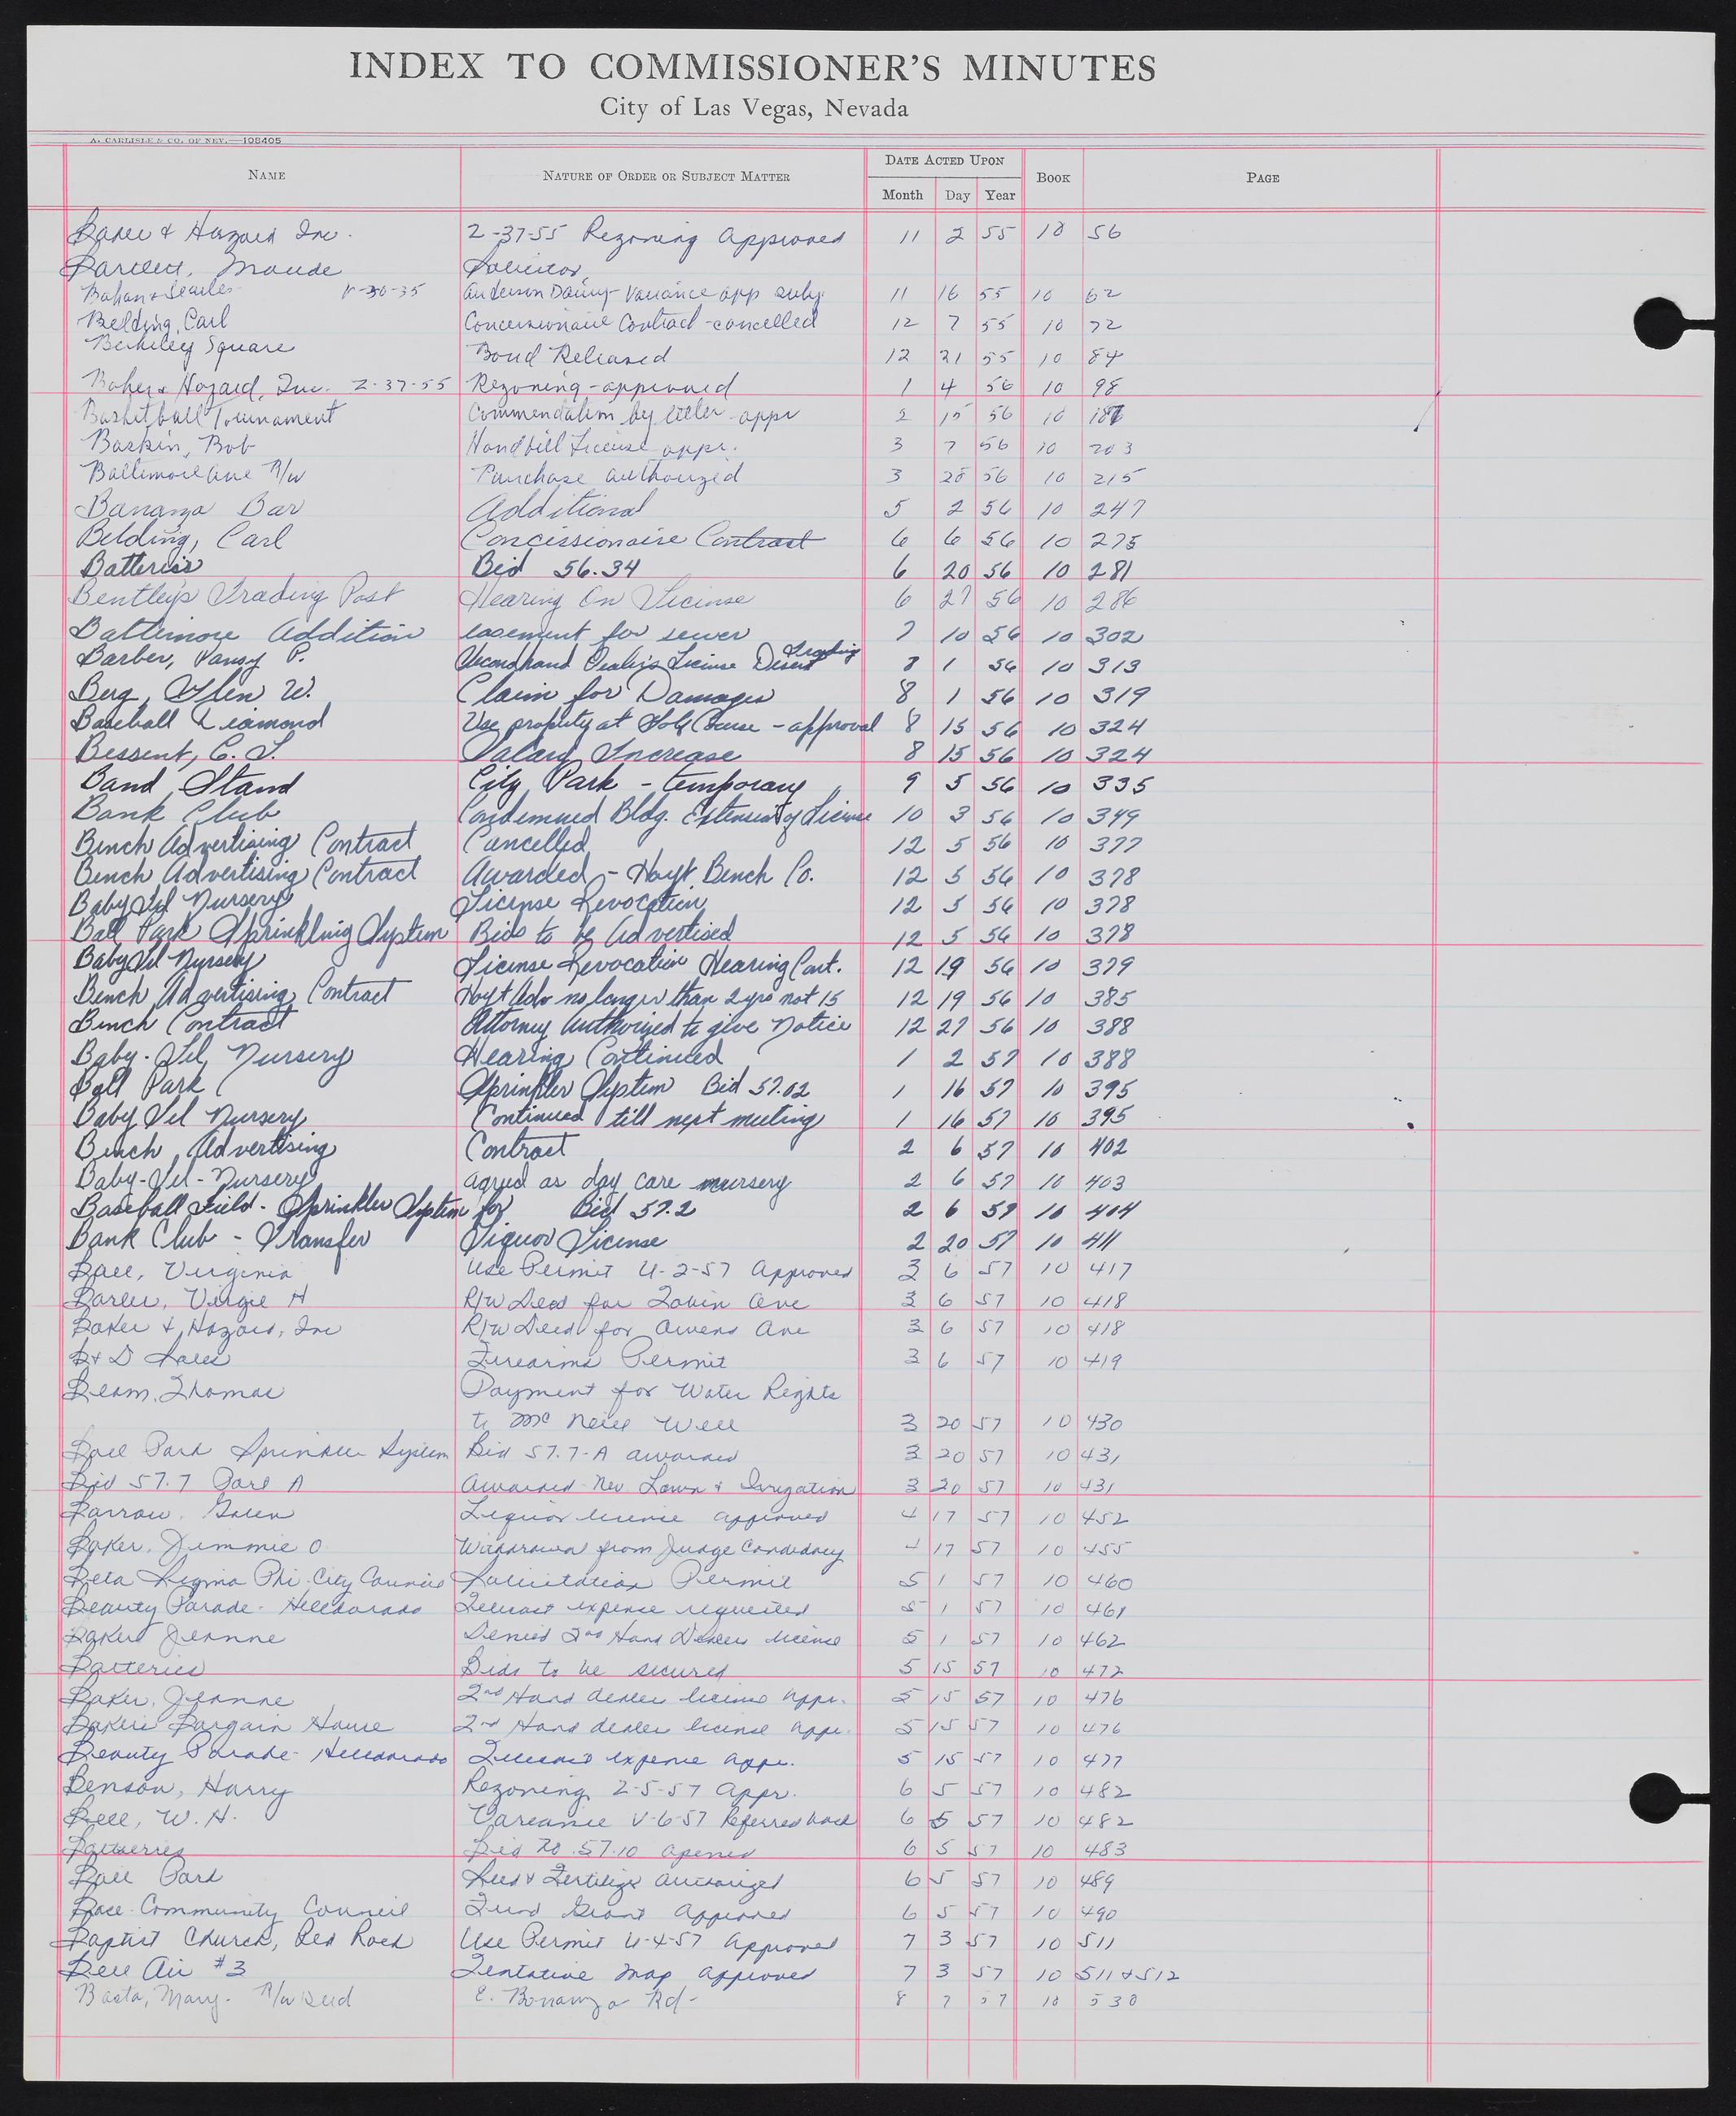 INDEX TO COMMISSIONER'S MINUTES
City of Las Vegas, Nevada
A. CARLISLE & CO. OF NEV.—108405
NAME NATURE OF ORDER OR SUBJECT MATTER DATE ACTED UPON BOOK PAGE
Month Day Year
Baker & Hazard Inc. Z-37-55 Rezoning Approved 11 2 55 10 56
Bartlett, Maude Solicitor
V-30-35 Anderson Dairy - Variance app 11 16 55 10 62
Belding, Carl Concessionaire Contract - cancelled 12 7 55 10 72
Berkeley Square Bond Released 12 21 55 10 84
Baker & Hazard, Inc. Z-37-55 Rezoning - approved 1 4 56 10 98
Basketball Tournament Commendation by letter appr 2 15 56 10
Baskin, Bob Handbill License appr. 3 7 56 10 203
Baltimore Ave R/W Purchase authorized 3 28 56 10 215
Bananza Bar Additional 5 2 56 10 247
Belding, Carl Concissionaire Contract 6 6 56 10 275
Batteries Bid 56.34 6 20 56 10 281
Bentley's Trading Post Hearing On License 6 27 56 10 286
Baltimore Addition easement for sewer 7 10 56 10 302
Barber, Pansy P. Secondhand Dealer's License Desert Trading 8 1 56 10 313
Berg, Glen W. Claim for Damages 8 1 56 10 319
Baseball Diamond Use property at Golf Course - approval 8 15 56 10 324
Bessent, C. L. Salary Increase 8 15 56 10 324
Band Stand City Park - temporary 9 5 56 10 335
Bank Club Condemned Bldg. Extension of License 10 3 56 10 349
Bench Advertising Contract Cancelled 12 5 56 10 377
Bench Advertising Contract Awarded - Hoyt Bench Co. 12 5 56 10 378
Baby Sit Nursery License Revocation 12 5 56 10 378
Ball Park Sprinkling System Bids to be Advertised 12 5 56 10 378
Baby Sit Nursery License Revocation Hearing Cont. 12 19 56 10 379
Bench Advertising Contract Hoyt Adv no longer than 2 yrs not 15 12 19 56 10 385
Bench Contract Attorney Authorized to give Notice 12 27 56 10 388
Baby-Sit Nursery Hearing Continued 1 2 57 10 388
Ball Park Sprinkler System Bid 57.02 1 16 57 10 395
Baby Sit Nursery Continued till next meeting 1 16 57 10 395
Bench Advertising Contract 2 6 57 10 402
Baby-Sit-Nursery agreed as day care nursery 2 6 57 10 403
Baseball Field - Sprinkler System for Bid 57.2 2 6 57 10 404
Bank Club - Transfer Liquor License 2 20 57 10 411
Ball, Virginia Use Permit U-2-57 Approved 3 6 57 10 417
Barler, Virgie H R/W Deed for Tobin Ave 3 6 57 10 418
Baker & Hazard, Inc R/W Deed for Owens Ave 3 6 57 10 418
B & D Sales Firearms Permit 3 6 57 10 419
Beam, Thomas Payment for Water Rights
to McNeill Well 3 20 57 10 430
Ball Park Sprinkler System Bid 57.7-A awarded 3 20 57 10 431
Bid 57.7 Part A Awarded - Nev Lawn & Irrigation 3 20 57 10 431
Barrow, Liquor license approved 4 17 57 10 452
Baker, Jimmie O. Withdrawn from Judge Candidacy 4 17 57 10 455
Beta Sigma Phi City Council Solicitation Permit 5 1 57 10 460
Beauty Parade - Helldorado Telecast expense requested 5 1 57 10 461
Baker Jeanne Denied 2nd Hand Dealers license 5 1 57 10 462
Batteries Bids to be secured 5 15 57 10 472
Baker, Jeanne 2nd Hand dealer license appr. 5 15 57 10 476
Bakers Bargain House 2nd Hand dealer license appr. 5 15 57 10 476
Beauty Parade - Helldorado Telecast expense appr. 5 15 57 10 477
Benson, Harry Rezoning Z-5-57 Appr. 6 5 57 10 482
Bell, W. H. Variance V-6-57 Referred back 6 5 57 10 482
Batteries Bid No 57.10 opened 6 5 57 10 483
Ball Park Seed & Fertilizer authorized 6 5 57 10 489
Base-Community Council Fund Grant Approved 6 5 57 10 490
Baptist Church, Red Rock Use Permit U-4-57 Approved 7 3 57 10 511
Bell Air #3 Tentative map approved 7 3 57 10 511 & 512
Basta, Mary - R/W Deed E. Bonanza Rd- 8 7 57 10 530